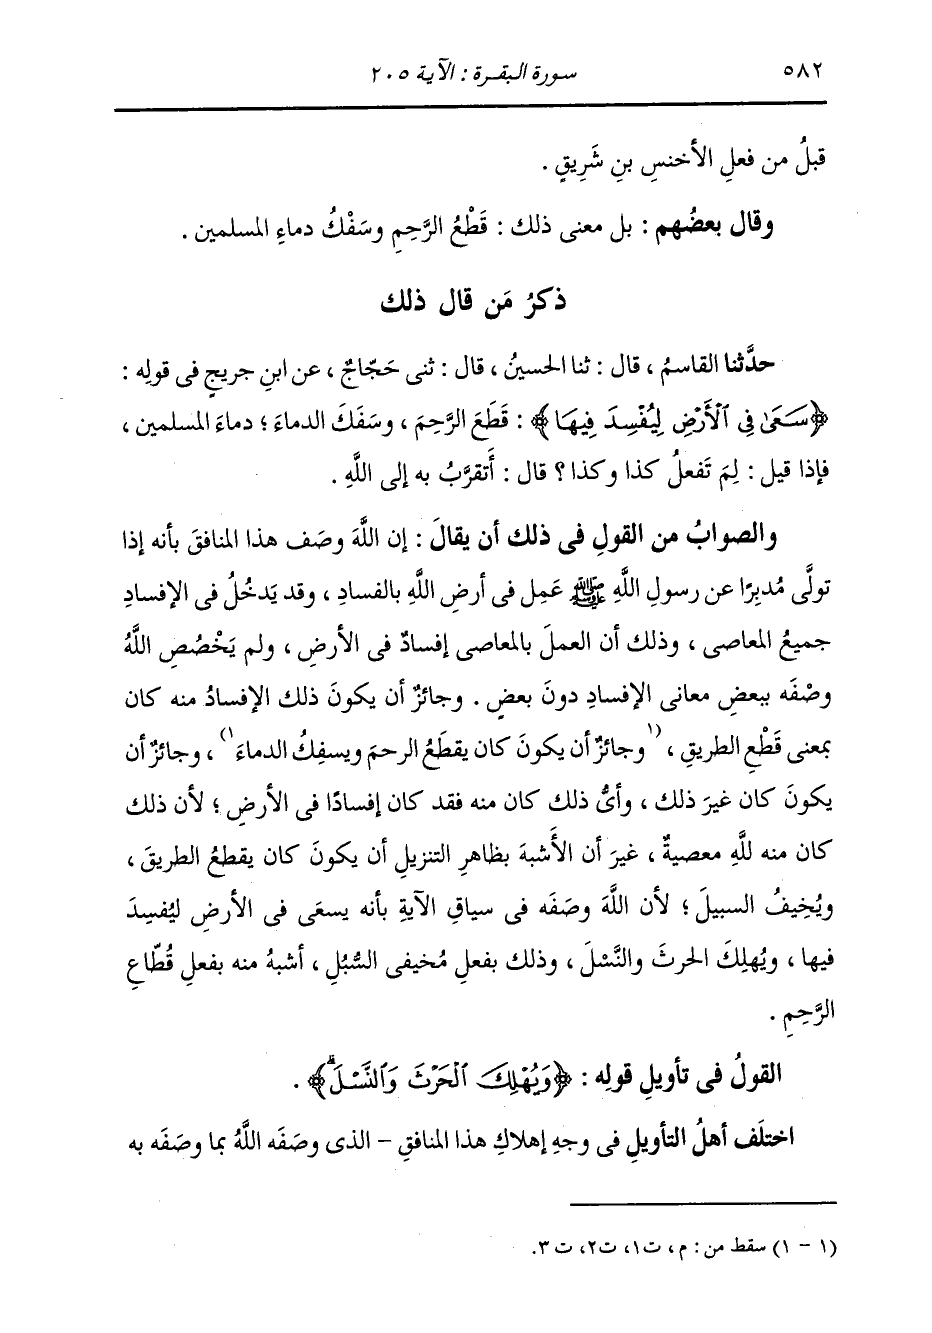 ٥٨٢
سورة البقرة : الآية ٢٠٥
قبلُ من فعلِ الأخنسِ بنِ شَرِيقٍ .
وقال بعضُهم : بل معنى ذلك : قَطْعُ الرَّحِمِ وسَفْكُ دماءِ المسلمين .
ذكرُ مَن قال ذلك
حدَّثنا القاسمُ ، قال : ثنا الحسينُ ، قال : ثنى حَجّاجٌ ، عن ابنِ جريجٍ فى قولِه :
﴿سَعَىٰ فِى ٱلْأَرْضِ لِيُفْسِدَ فِيهَا﴾ : قَطَعَ الرَّحِمَ ، وسَفَكَ الدماءَ ؛ دماءَ المسلمين ،
فإذا قيل : لِمَ تَفعلُ كذا وكذا ؟ قال : أَتقرَّبُ به إلى اللَّهِ .
والصوابُ من القولِ فى ذلك أن يقالَ : إن اللَّهَ وصَف هذا المنافقَ بأنه إذا
تولَّى مُدبِرًا عن رسولِ اللَّهِ ﷺ عَمِل فى أرضِ اللَّهِ بالفسادِ ، وقد يَدخُلُ فى الإفسادِ
جميعُ المعاصى ، وذلك أن العملَ بالمعاصى إفسادٌ فى الأرضِ ، ولم يَخْصُصِ اللَّهُ
وصْفَه ببعضِ معانى الإفسادِ دونَ بعضٍ . وجائزٌ أن يكونَ ذلك الإفسادُ منه كان
بمعنى قَطْعِ الطريقِ ، (١ وجائزٌ أن يكونَ كان يقطَعُ الرحمَ ويسفِكُ الدماءَ ١) ، وجائزٌ أن
يكونَ كان غيرَ ذلك ، وأىُّ ذلك كان منه فقد كان إفسادًا فى الأرضِ ؛ لأن ذلك
كان منه للَّهِ معصيةٌ ، غيرَ أن الأَشبهَ بظاهرِ التنزيلِ أن يكونَ كان يقطعُ الطريقَ ،
ويُخِيفُ السبيلَ ؛ لأن اللَّهَ وصَفَه فى سياقِ الآيةِ بأنه يسعَى فى الأرضِ ليُفسِدَ
فيها ، ويُهلِكَ الحرثَ والنَّسْلَ ، وذلك بفعلِ مُخيفى السُّبُلِ ، أشبهُ منه بفعلِ قُطّاعِ
الرَّحِمِ .
القولُ فى تأويلِ قولِه : ﴿وَيُهْلِكَ ٱلْحَرْثَ وَٱلنَّسْلَۗ﴾ .
اختلَف أهلُ التأويلِ فى وجهِ إهلاكِ هذا المنافقِ - الذى وصَفَه اللَّهُ بما وصَفَه به
(١ - ١) سقط من : م ، ت١، ت٢، ت٣.